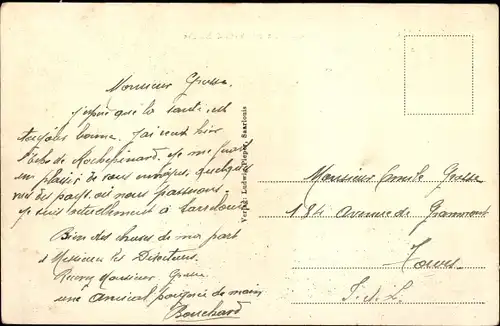 Monsieur Grosse.
j'espère que la santé est
toujours bonne. j'ai écrit hier
de Rochepinard. je me ferai
un plaisir de vous envoyer quelques
vues des pays où nous passons.
je suis actuellement à Sarrelouis
Bien des choses de ma part
à Messieurs les Directeurs.
Recevez Monsieur Grosse
une amical poignée de main
Bouchard
Verlag: Ludwig Pieper, Saarlouis
Monsieur Camille Grosse
184 Avenue de Grammont
Tours
I. et L.